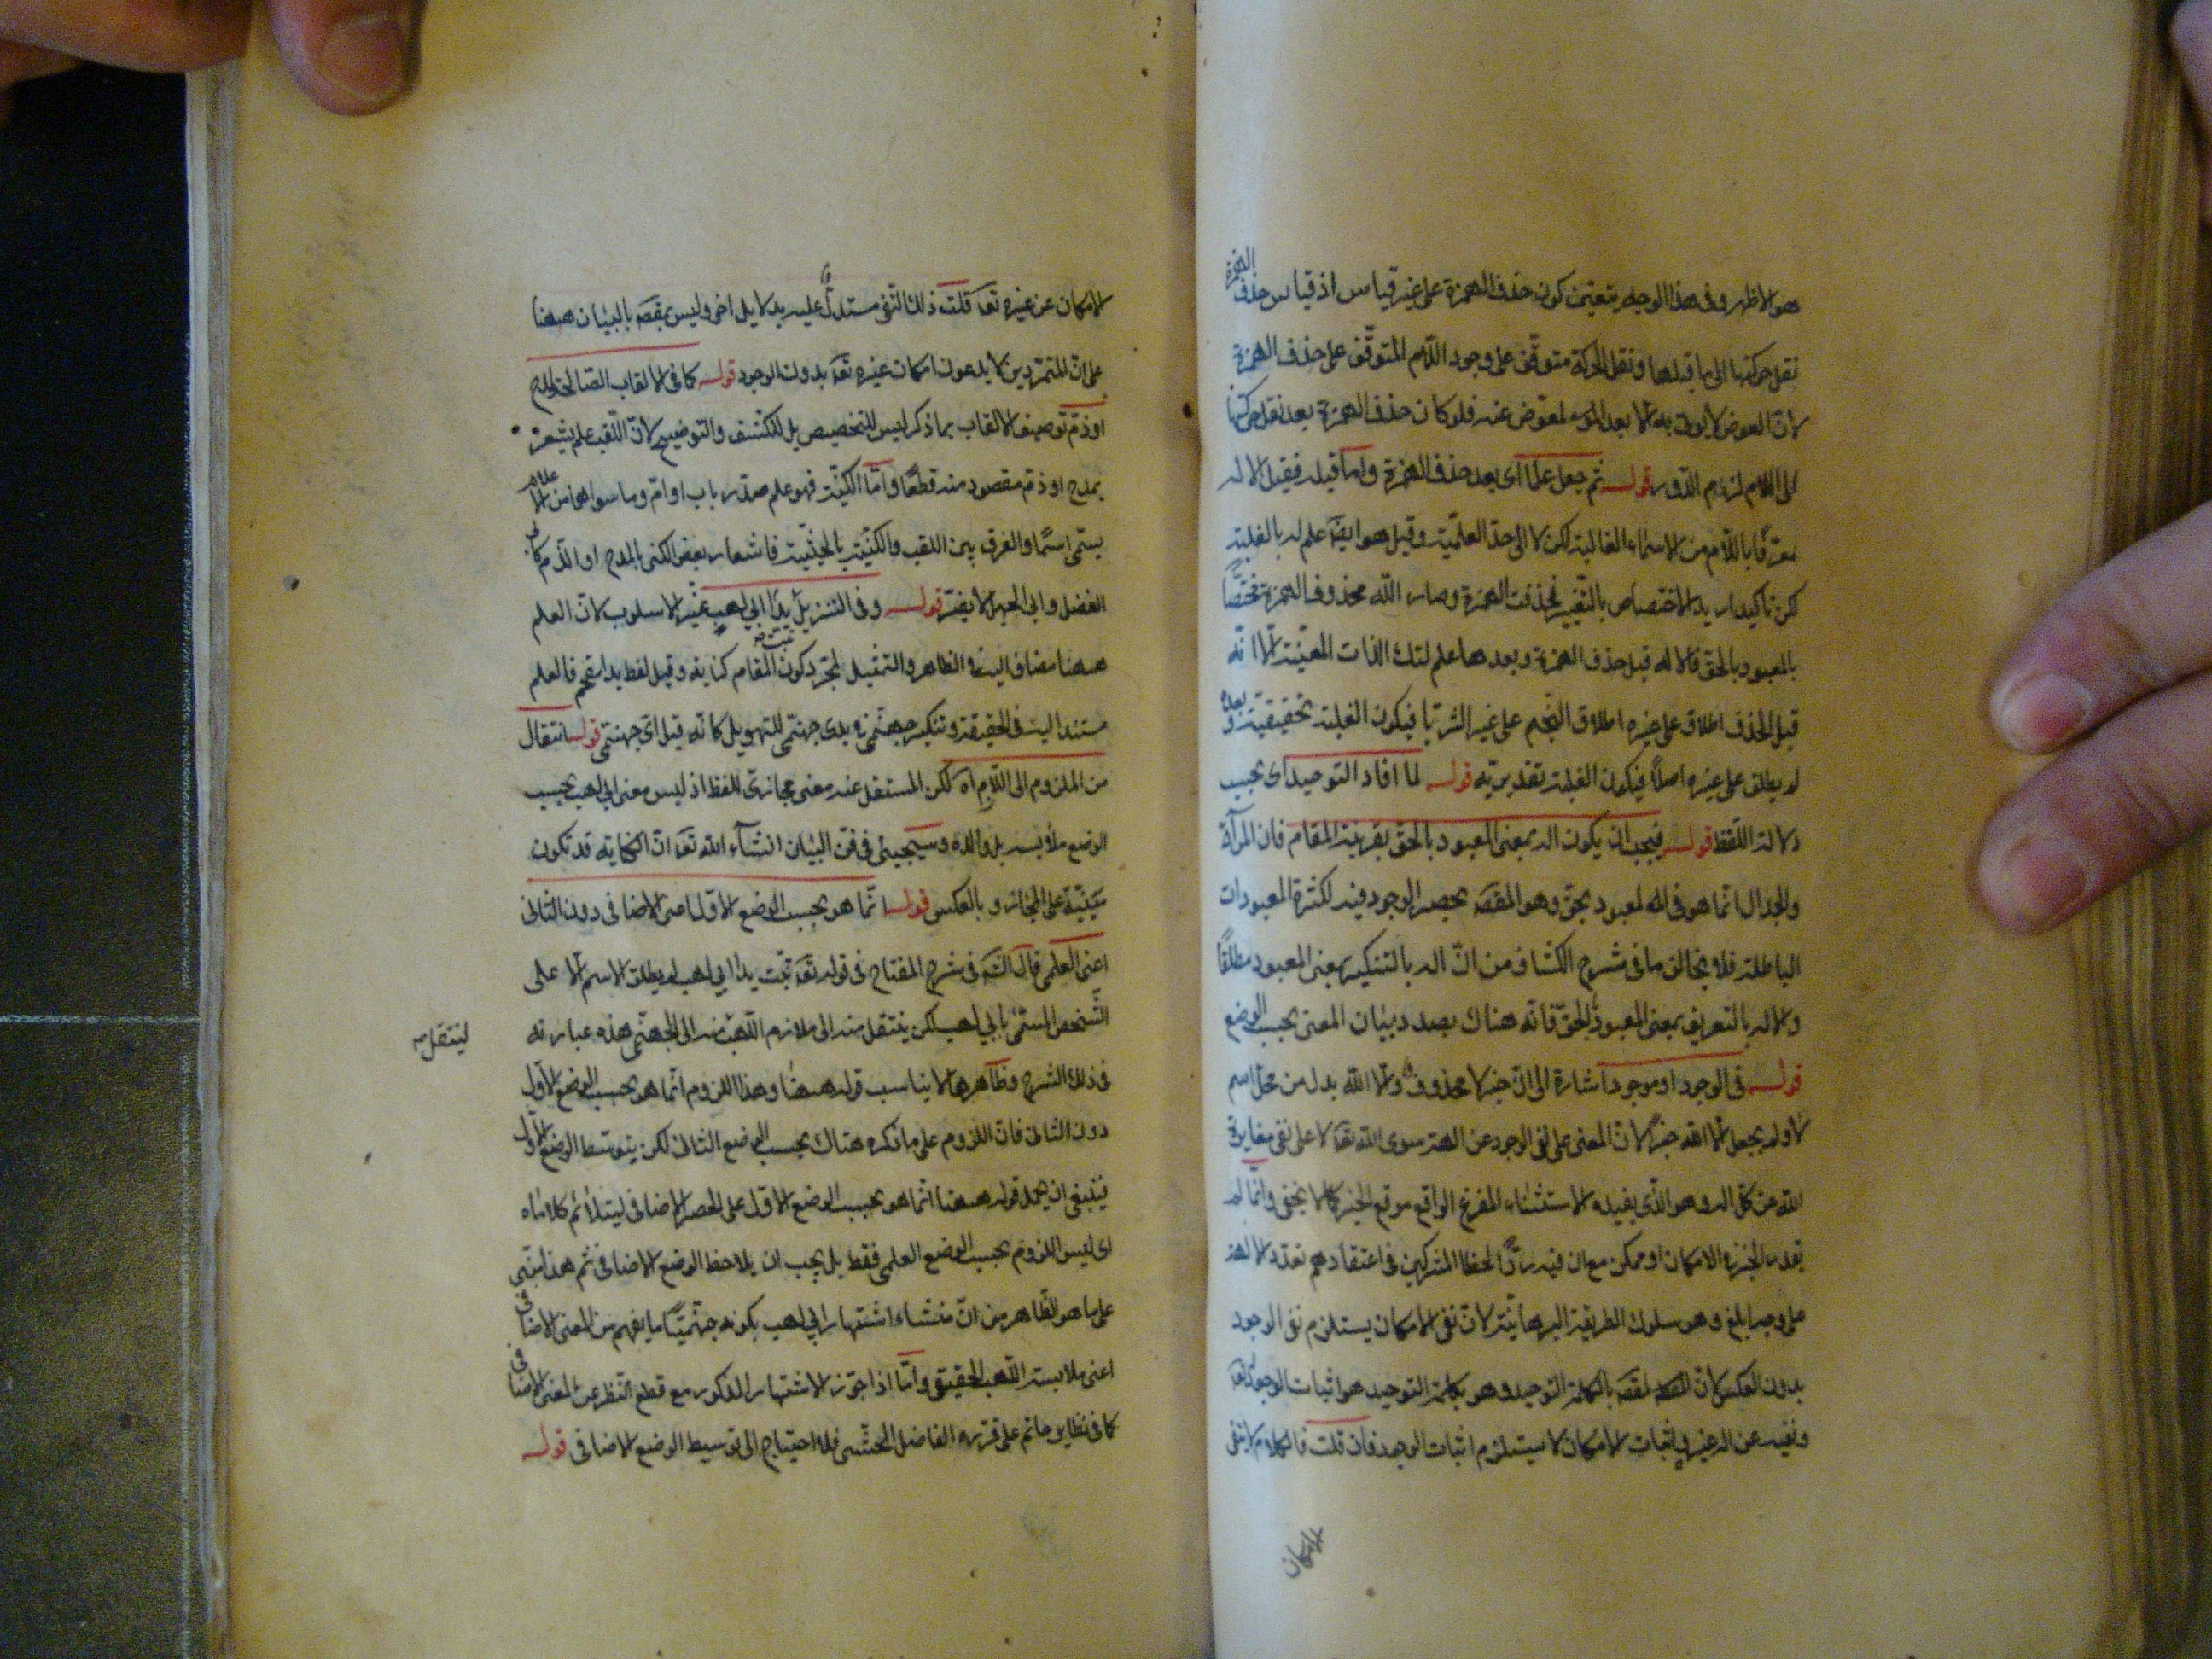 هو الاظهر وفى هذا الوجه يتعين كون حذف الهمزة على غير قياس اذ قياس حذف الهمزة
نقل حركتها الى ما قبلها ونقل الحركة متوقف على وجود اللام المتوقف على حذف الهمزة
لان العوض لا يؤتى به الا بعد المعوض عنه فلو كان حذف الهمزة بعد نقل حركتها
الى اللام لزم الدور قوله ثم جعل علما اى بعد حذف الهمزة واما قبله فقيل الاله
معرفا باللام من الاسماء الغالبة لكن لا الى حد العلمية وقيل هو ايضا علم له بالغلبة
لكن تأكيد اريد الاختصاص بالتغيير فحذفت الهمزة وصار الله محذوف الهمزة مختصا
بالمعبود بالحق فالاله قبل حذف الهمزة وبعدها علم لتلك الذات المعينة الا انه
قبل الحذف اطلاق على غيره اطلاق النجم على غير الثريا فيكون الغلبة تحقيقية وبعده
لم يطلق على غيره اصلا فيكون الغلبة تقديرية قوله لما افاد التوحيد اى بحسب
دلالة اللفظ قوله فيجب ان يكون اله بمعنى المعبود بالحق بقرينة المقام فان المرآة
والجدال انما هو فى اله لمعبود بحق وهو المقصَ بحصر الوجود فيه لكثرة المعبودات
الباطلة فلا يخالف ما فى شرح الكشاف من ان اله بالتنكير بمعنى المعبود مطلقا
والاله بالتعريف بمعنى المعبود بالحق فانه هناك بصدد بيان المعنى بحسب الوضع
قوله فى الوجود او موجود اشارة الى ان خبر لا محذوف والا الله بدل من محل اسم
لا ولم يجعل الا الله خبرا لان المعنى على نفى الوجود عن الهة سوى الله تعَ لا على نفى مغايرة
الله عن كل اله وهو الذى يفيده الاستثناء المفرغ الواقع موقع الخبر كما لا يخفى وانما لم
يقدر الخبر فى الامكان او ممكن مع ان فيه ردا لخطا المشركين فى اعتقادهم تعدد الالهة
على وجه ابلغ وهو سلوك الطريقة البرهانية لان نفى الامكان يستلزم نفى الوجود
بدون العكس لان المقصَ بالكلمة التوحيد وهو بكلمة التوحيد هو اثبات الوجود له تعَ
ونفيه عن اله غيره واثبات الامكان لا يستلزم اثبات الوجود فان قلت فالكلام لا ينفى
الامكان
الامكان عن غيره تعَ قلت ذلك النفى مستدل عليه بدلايل اخر وليس بمقصَ بالبيان ههنا
على ان المتمردين لا يدعون امكان غيره تعَ بدون الوجود قوله كما فى الالقاب الصالحة لمدح
او ذم توصيف الالقاب بما ذكر ليس للتخصيص بل للكشف والتوضيح لان اللقب علم يشعر
بمدح او ذم مقصود منه قطعا واما الكنية فهو علم صدر باب او ام وما سواهما من الاعلام
يسمى اسما والفرق بين اللقب والكنية بالحيثية فاشعار بعض الكنى بالمدح او الذم كابى
الفضل وابى الجهل لا يضر قوله وفى التنزيل يدا ابى لهب غير الاسلوب لان العلم
ههنا مضاف اليه فى الظاهر والتمثيل لمجرد كون المقام كناية وقيل لفظ يدا مقحم فالعلم
مسند اليه فى الحقيقة وتنكير جهنمى فى يدى جهنمى للتهويل كانه قيل اى جهنمى قوله انتقال
من الملزوم الى اللازم اه لكن المستقل عنه معنى مجازى للفظ اذ ليس معنى ابى لهب بحسب
الوضع ملابسه بل والده وسيجيئ فى فن البيان انشآء الله تعَ ان الكناية قد تكون
مبنية على المجاز وبالعكس قوله انما هو بحسب الوضع الاول اعنى الاضافى دون الثانى
اعنى العلمى قال الشَه فى شرح المفتاح فى قوله تعَ تبت يدا ابى لهب لم يطلق الاسم الا على
الشخص المسمى بابى لهب لكن ينتقل منه الى ملازم اللهب لينتقل منه الى الجهنمى هذه عبارته
فى ذلك الشرح وظاهرها لا يناسب قوله ههنا وهذا اللزوم انما هو بحسب الوضع الاول
دون الثانى فان اللزوم على ما ذكره هناك بحسب الوضع الثانى لكن بتوسط الوضع الاول
فينبغى ان يحمل قوله ههنا انما هو بحسب الوضع الاول على الحصر الاضافى ليتلائم كلاماه
اى ليس اللزوم بحسب الوضع العلمى فقط بل يجب ان يلاحظ الوضع الاضافى ثم هذا مبنى
على ما هو الظاهر من ان منشاء اشتهار ابى لهب بكونه جهنميا ما يفهم من المعنى الاضافى
اعنى ملابسة اللهب الحقيقى واما اذا جوز الاشتهار المذكور مع قطع النظر عن المعنى الاضافى
كما فى نظاير حاتم على قرره الفاضل المحشى فلا احتياج الى توسيط الوضع الاضافى قوله